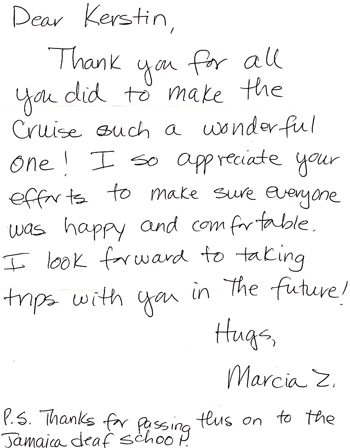 Dear Kerstin,
Thank you for all
you did to make the
Cruise such a wonderful
one! I so appreciate your
efforts to make sure everyone
was happy and comfortable.
I look forward to taking
trips with you in the future!
Hugs,
Marcia Z.
P.S. Thanks for passing this on to the
Jamaica deaf school.